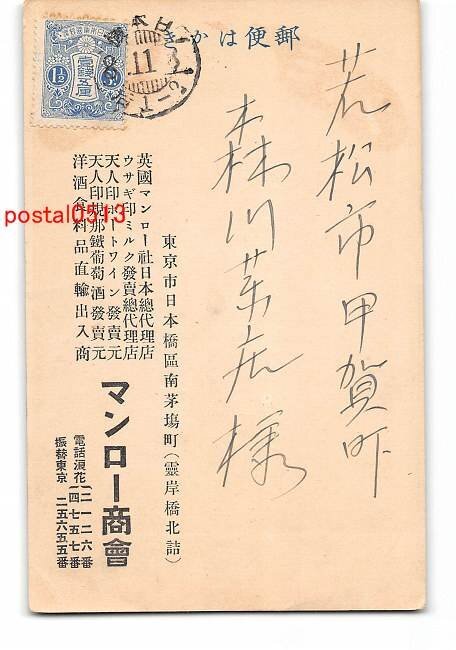 きかは便郵
壹錢五厘
1½
11
若松市甲賀町
森川茶店様
東京市日本橋區南茅塲町(靈岸橋北詰)
英國マンロー社日本總代理店
ウサギ印ミルク發賣總代理店
天人印ポートワイン發賣元
天人印規那鐵葡萄酒發賣元
洋酒食料品直輸出入商
マンロー商會
電話浪花(二一二六番
(四七五七番
振替東京 二五六五五番
postal0513